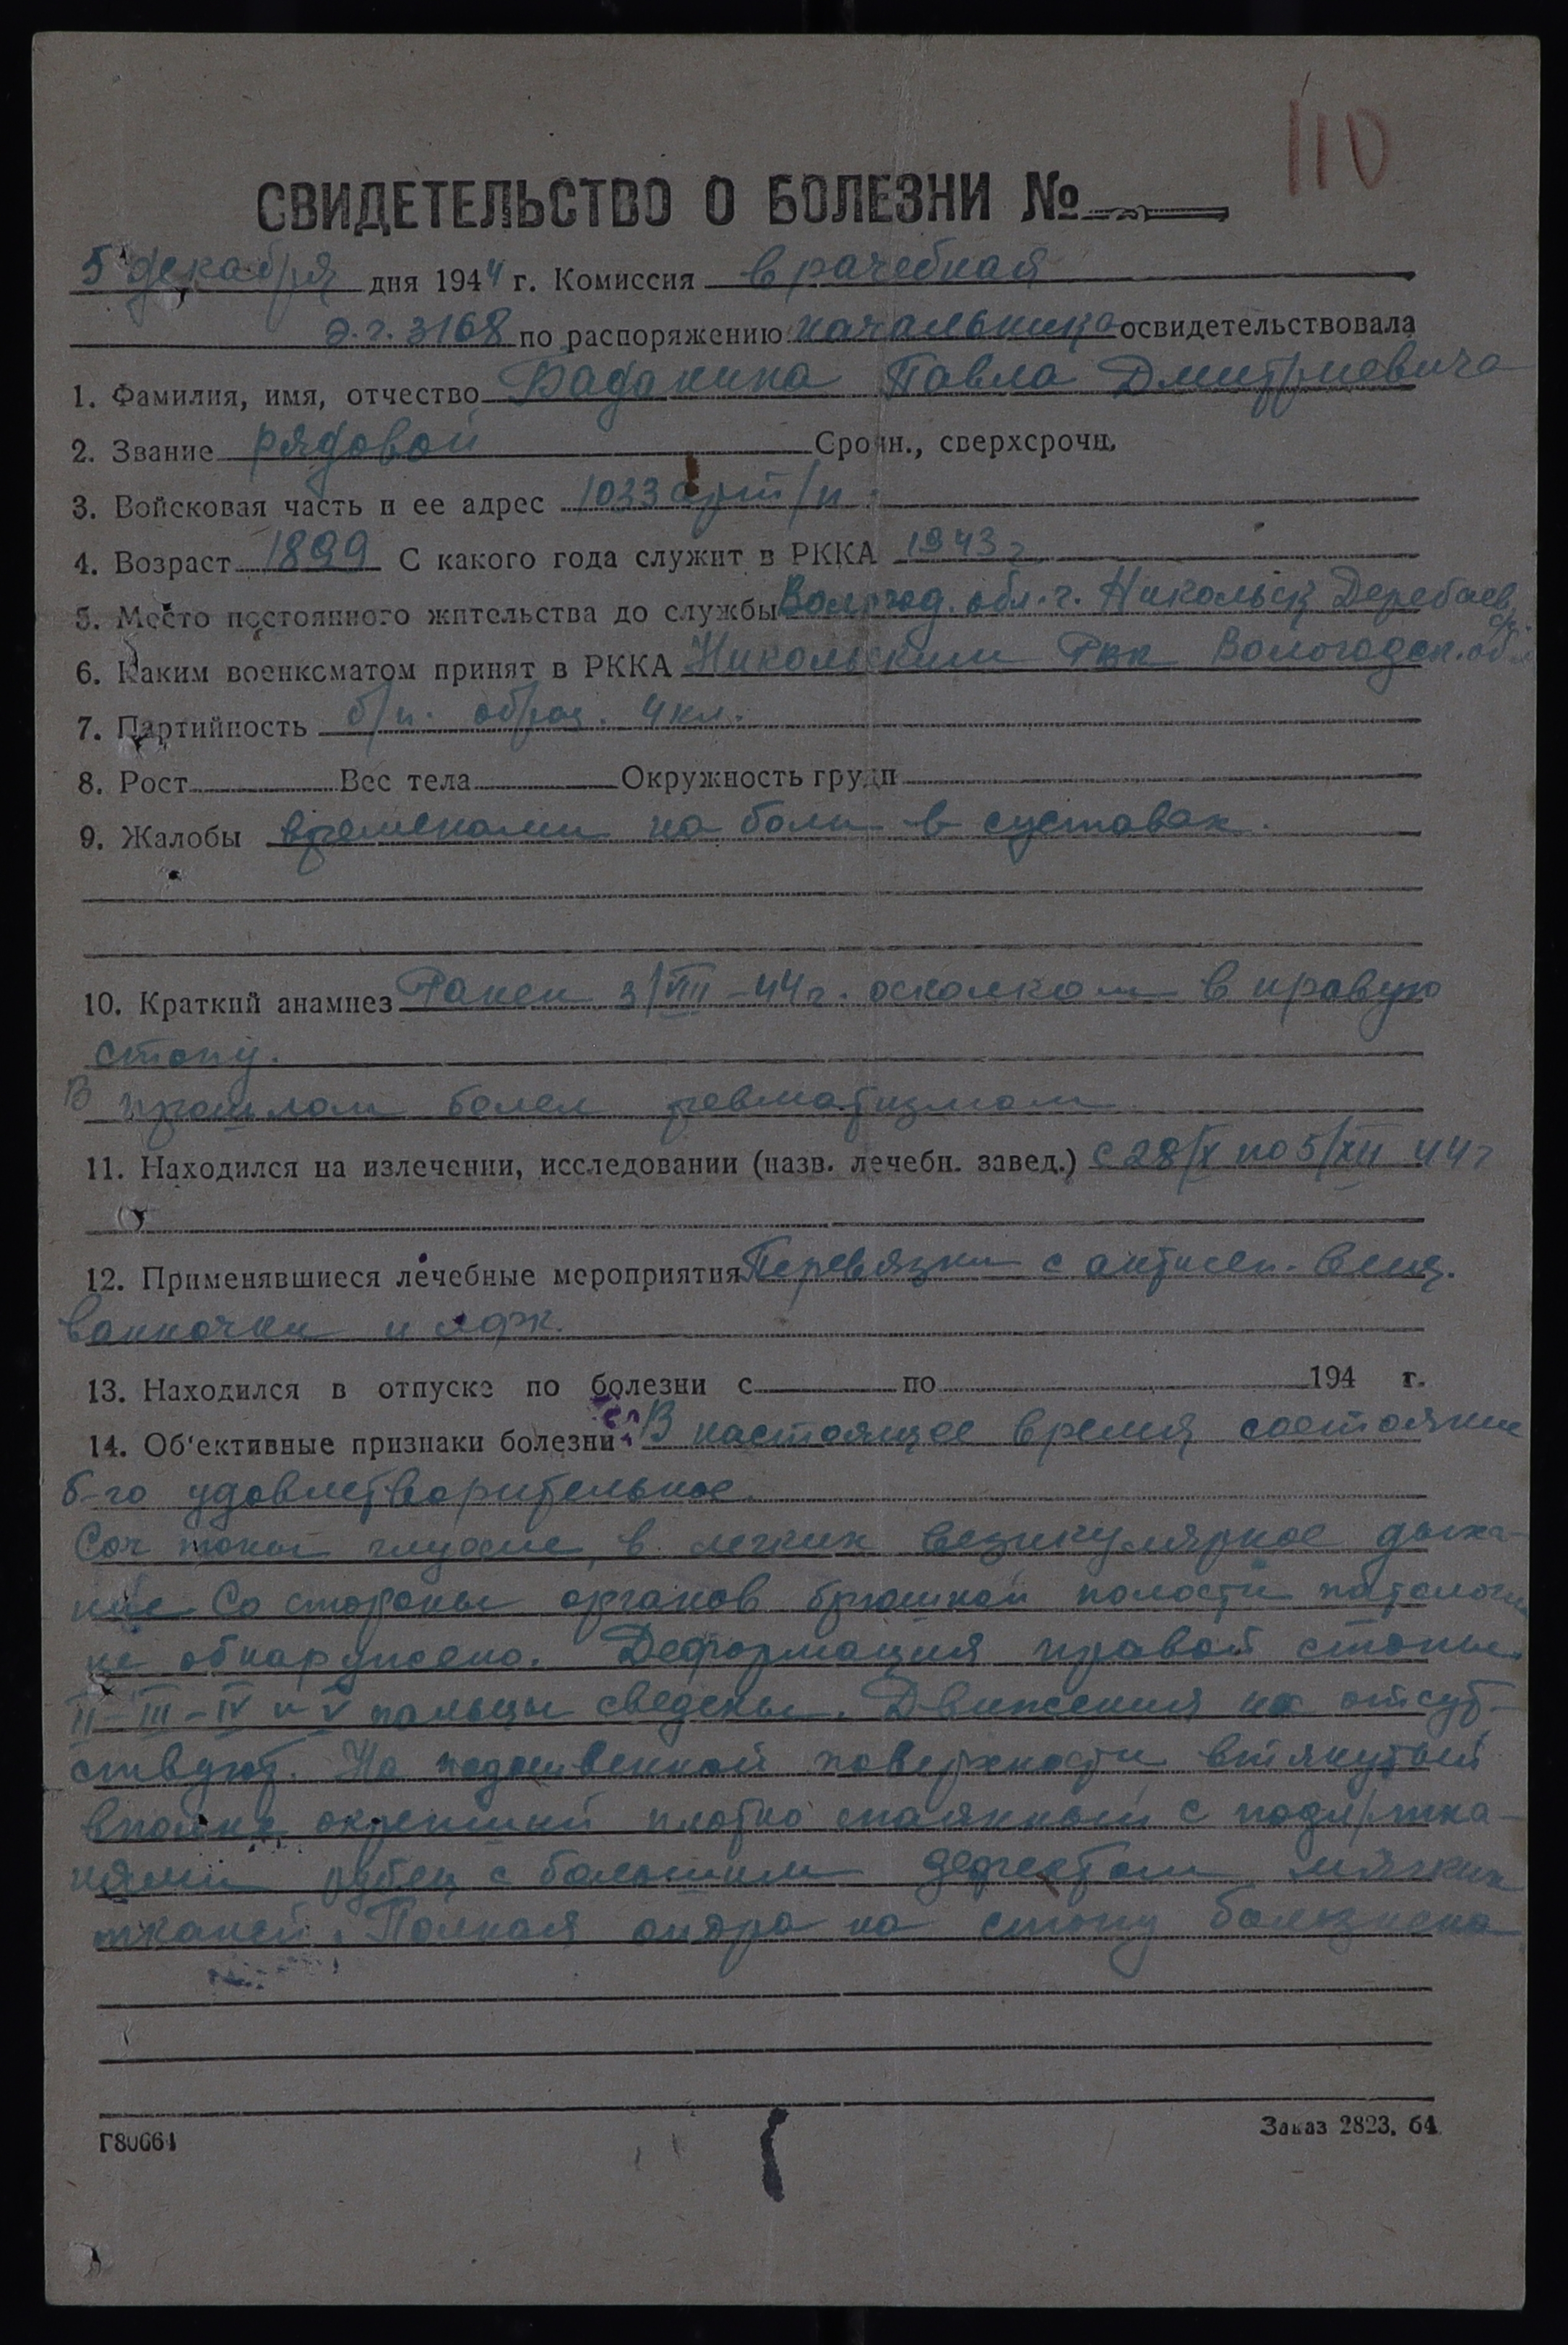 110
СВИДЕТЕЛЬСТВО О БОЛЕЗНИ №
5 декабря дня 1944 г. Комиссия врачебная
э.г. 3168 по распоряжению начальника освидетельствовала
1. Фамилия, имя, отчество Баданина Павла Дмитриевича
2. Звание рядовой Срочн., сверхсрочн.
3. Войсковая часть и ее адрес 1033 арт/п.
4. Возраст 1899 С какого года служит в РККА 1943 г
5. Место постоянного жительства до службы Вологод. обл. г. Никольск
6. Каким военкоматом принят в РККА Никольским РВК Вологодск. обл
7. Партийность б/п. образ. 4 кл.
8. Рост Вес тела Окружность груди
9. Жалобы временами на боли в суставах.
10. Краткий анамнез Ранен 3/VIII-44 г. осколком в правую
стопу.
В прошлом болел ревматизмом
11. Находился на излечении, исследовании (назв. лечебн. завед.) с 28/X по 5/XII 44 г
12. Применявшиеся лечебные мероприятия Перевязки с антисеп. вещ.
ванночки и лфк.
13. Находился в отпуске по болезни с по 194 г.
14. Об'ективные признаки болезни В настоящее время состояние
б-го удовлетворительное
Сер тоны глухие, в легких везикулярное дыха-
ние Со стороны органов брюшной полости патологии
не обнаружено. Деформация правой стопы.
II-III-IV и V пальцы сведены. Движения их отсут-
ствуют. На подошвенной поверхности втянутый
вполне окрепший плотно спаянный с подл/тка-
нями рубец с большим дефектом мягких
тканей. Полная опора на стопу болезнена
Г80664
Заказ 2823. 64